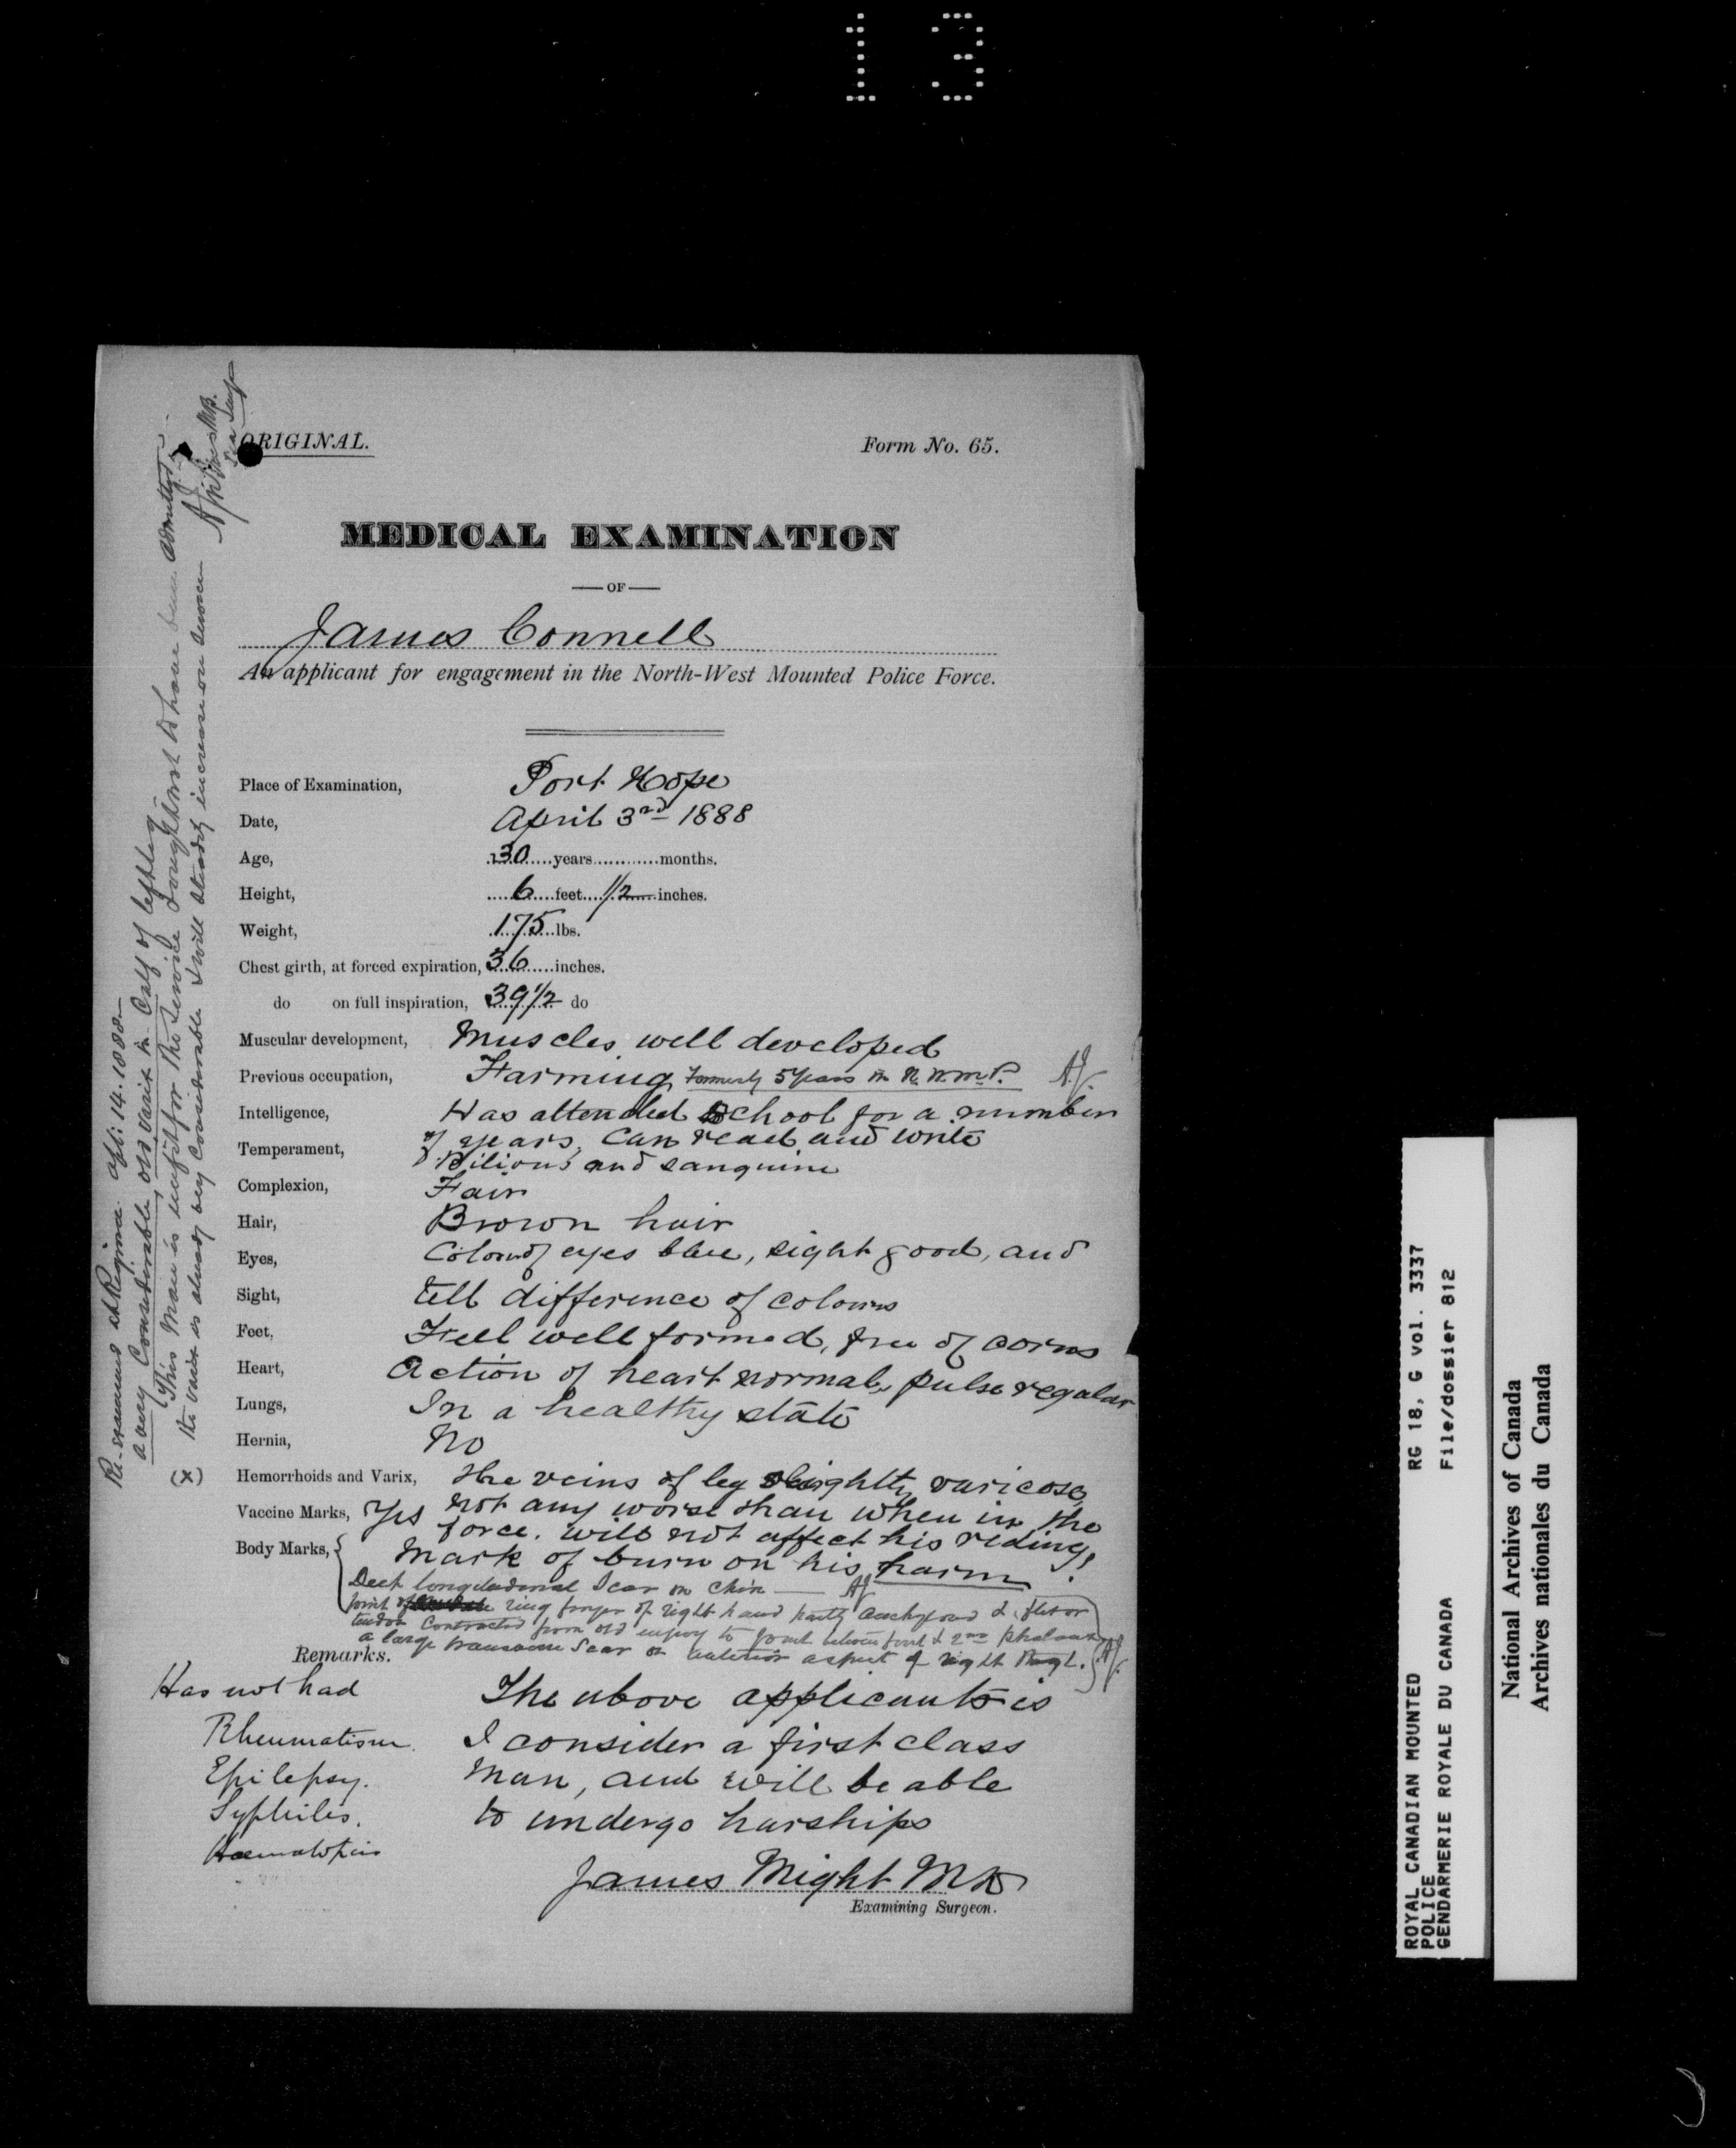 13
ORIGINAL.
Form No. 65.
MEDICAL EXAMINATION
OF
James Connell
An applicant for engagement in the North-West Mounted Police Force.
Place of Examination, Port Hope
Date, April 3rd 1888
Age, 30 years months.
Height, 6 feet 1/2 inches.
Weight, 175 lbs.
Chest girth, at forced expiration, 36 inches.
do on full inspiration, 39 1/2 do
Muscular development, Muscles well developed
Previous occupation, Farming Formerly 5 years in N.W.M.P. A.J.
Intelligence, Has attended school for a number
of years, Can read and write
Temperament, Bilious and sanguine
Complexion, Fair
Hair, Brown hair
Eyes, Colour of eyes blue, sight good, and
Sight, tell difference of colours
Feet, Feet well formed, free of corns
Heart, Action of heart normal, pulse regular
Lungs, In a healthy state
Hernia, No
Hemorrhoids and Varix, The veins of leg slightly varicose,
not any worse than when in the
force. will not affect his riding,
Vaccine Marks, Yes
Body Marks, Mark of burn on his harm
Deep longitudinal Scar on Chin — A.J.
joint of ring finger of right hand partly anchylosed & flexor
tendon Contracted from old injury to joint between first & 2nd phalanx
a large transverse Scar on anterior aspect of right thigh. A.J.
Remarks.
Has not had
Rheumatism.
Epilepsy.
Syphilis.
Haemoptisis
The above applicant is
I consider a first class
man, and will be able
to undergo harships
James Might MD
Examining Surgeon.
Re-examined at Regina. Apl: 14. 1888—
a very Considerable old varix in Calf of left leg—
(x) This man is unfit for the Service & ought not to have been admitted—
the varix is already very Considerable & will steadily increase on service—
ROYAL CANADIAN MOUNTED
POLICE
GENDARMERIE ROYALE DU CANADA
RG 18, G vol. 3337
File/dossier 812
National Archives of Canada
Archives nationales du Canada